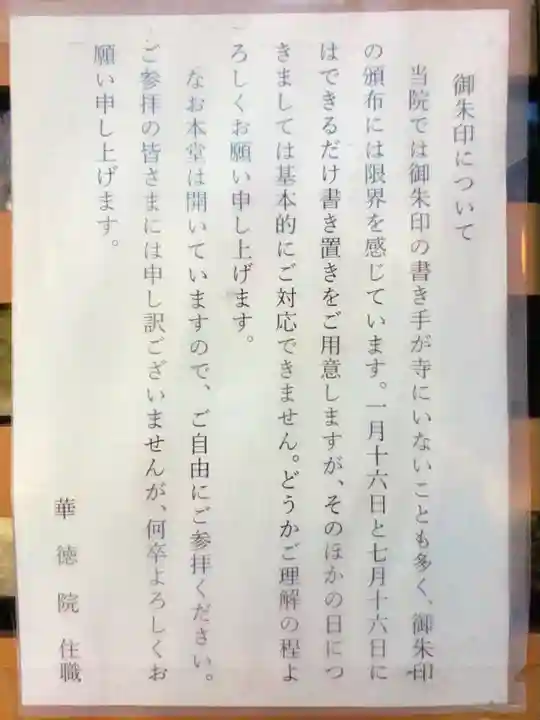 御朱印について
当院では御朱印の書き手が寺にいないことも多く、御朱印
の頒布には限界を感じています。一月十六日と七月十六日に
はできるだけ書き置きをご用意しますが、そのほかの日につ
きましては基本的にご対応できません。どうかご理解の程よ
ろしくお願い申し上げます。
なお本堂は開いていますので、ご自由にご参拝ください。
ご参拝の皆さまには申し訳ございませんが、何卒よろしくお
願い申し上げます。
華徳院住職